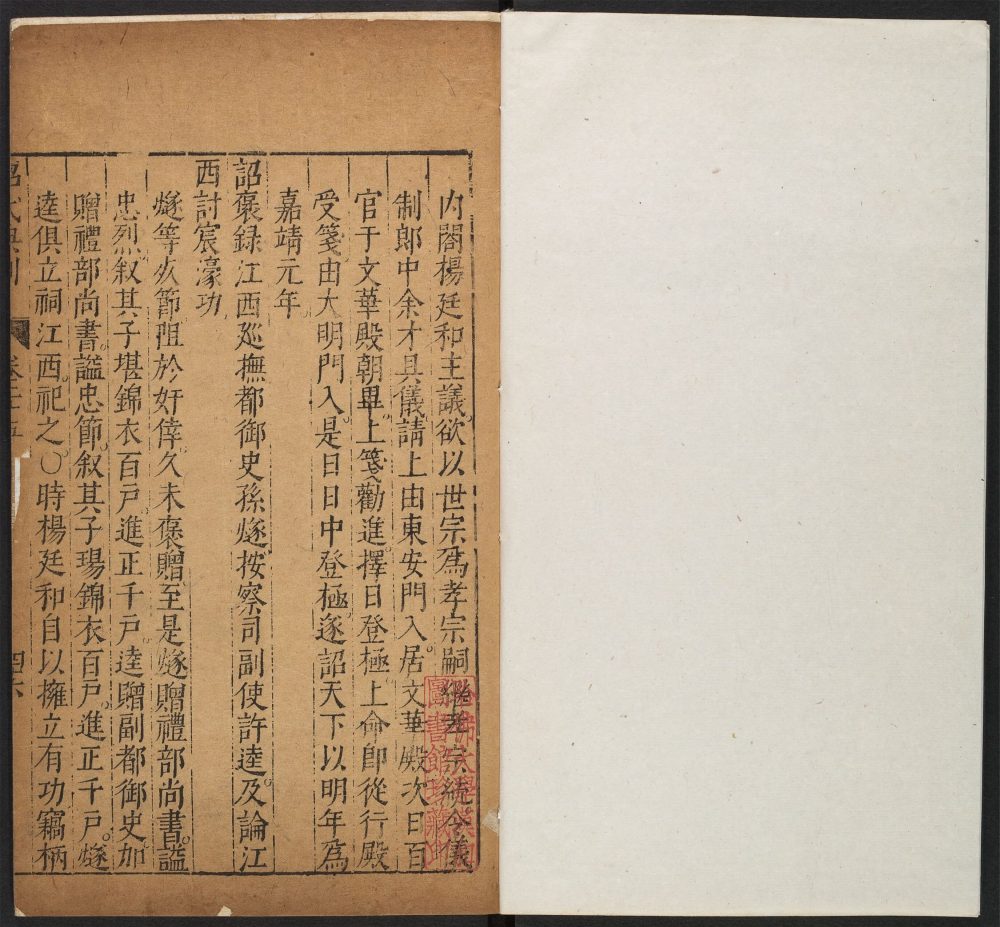 內閣楊廷和主議欲以世宗爲孝宗嗣繼孝宗統令儀
制郎中余才具儀請上由東安門入居文華殿次日百
官于文華殿朝畢上箋勸進擇日登極上命卽從行殿
受箋由大明門入是日日中登極遂詔天下以明年爲
嘉靖元年
詔褒錄江西廵撫都御史孫燧按察司副使許逵及論江
西討宸濠功
燧等死節阻於奸倖久未褒贈至是燧贈禮部尚書諡
忠烈叙其子堪錦衣百戶進正千戶逵贈副都御史加
贈禮部尚書謚忠節叙其子瑒錦衣百戶進正千戶燧
逵俱立祠江西祀之〇時楊廷和自以擁立有功竊柄
卷二十五
四六
圖書館珍藏印